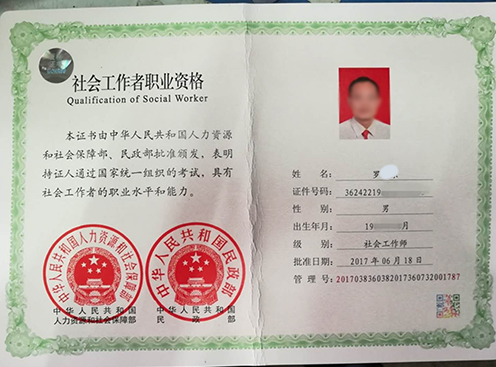 社会工作者职业资格
Qualification of Social Worker
本证书由中华人民共和国人力资源
和社会保障部、民政部批准颁发，表明
持证人通过国家统一组织的考试，具有
社会工作者的职业水平和能力。
中华人民共和国人力资源和社会保障部
中华人民共和国民政部
中华人民共和国
人力资源和社会保障部
中华人民共和国
民政部
姓名：罗
证件号码：36242219
性别：男
出生年月：19 月
级别：社会工作师
批准日期：2017 年 06 月 18 日
管理号：2017038360382017360732001787